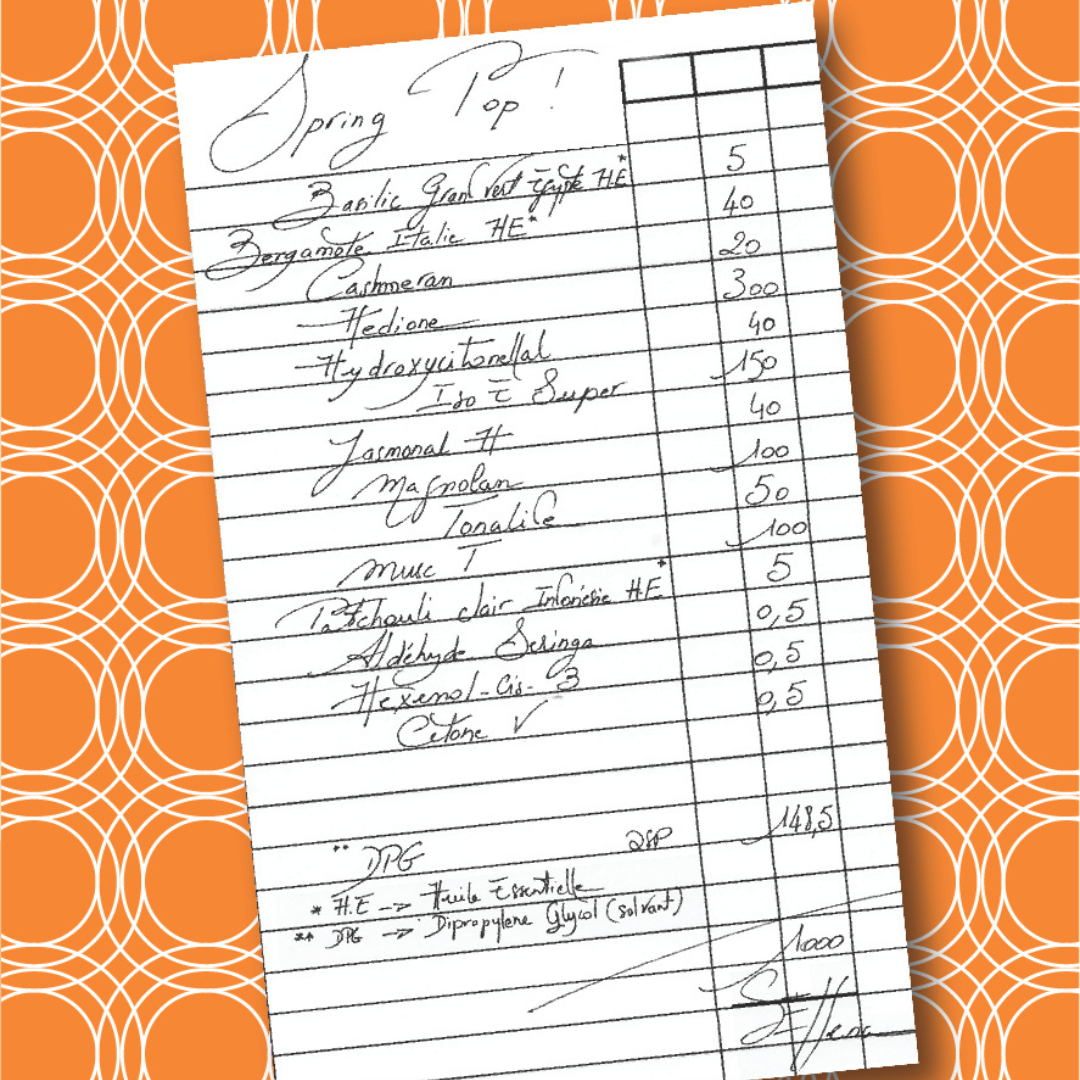 Spring Pop !
Basilic Grand vert Egypte HE* 5
Bergamote Italie HE* 40
Cashmeran 20
Hedione 300
Hydroxycitronellal 40
Iso E Super 150
Jasmonal H 40
Magnolan 100
Tonalide 50
Musc T 100
Patchouli clair Indonésie HE* 5
Aldéhyde Seringa 0,5
Hexenol-Cis-3 0,5
Cétone V 0,5
** DPG QSP 148,5
* H.E -> Huile Essentielle
** DPG -> Dipropylene Glycol (solvant)
1000